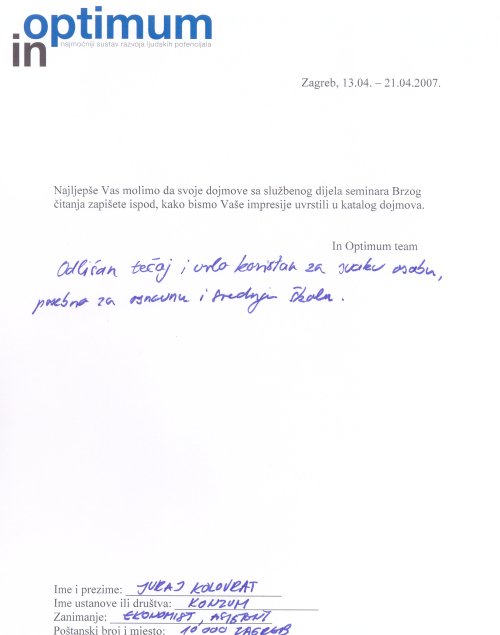 optimum
in
najmoćniji sustav razvoja ljudskih potencijala
Zagreb, 13.04. – 21.04.2007.
Najljepše Vas molimo da svoje dojmove sa službenog dijela seminara Brzog
čitanja zapišete ispod, kako bismo Vaše impresije uvrstili u katalog dojmova.
In Optimum team
Odličan tečaj i vrlo koristan za svaku osobu,
posebno za osnovnu i srednju školu.
Ime i prezime: JURAJ KOLOVRAT
Ime ustanove ili društva: KONZUM
Zanimanje: EKONOMIST, ASISTENT
Poštanski broj i mjesto: 10 000 ZAGREB